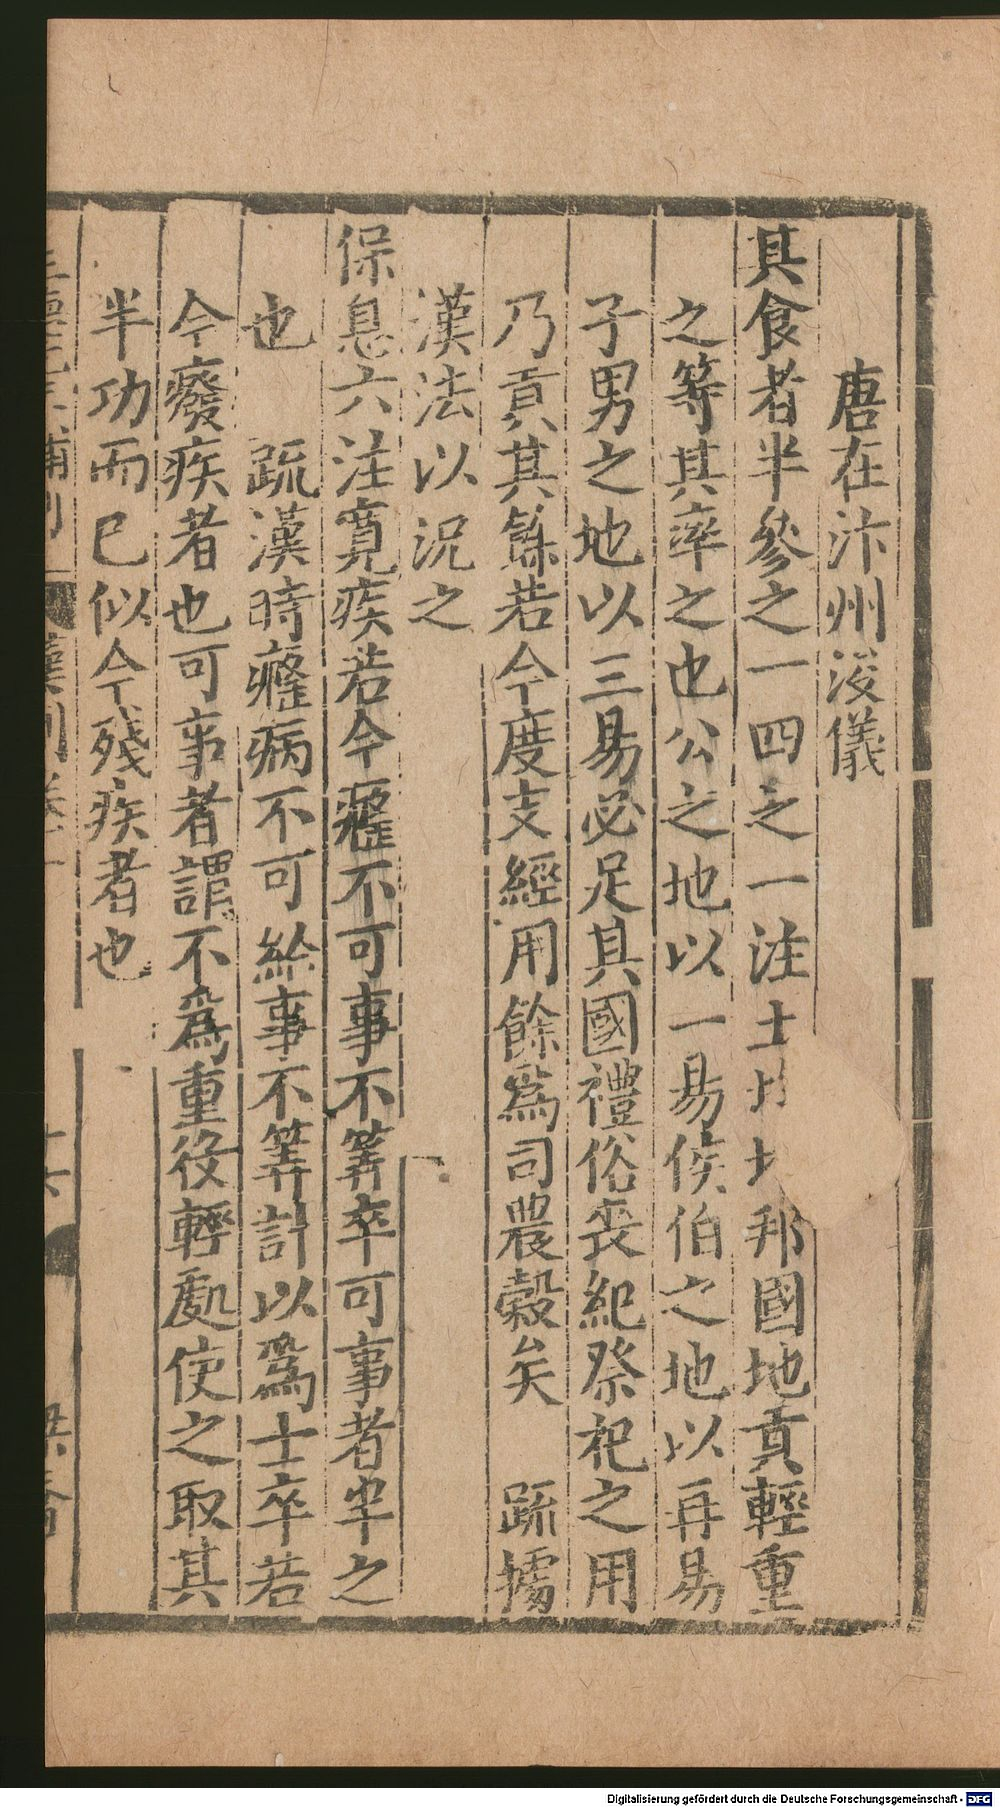 唐在汴州浚儀
其食者半參之一四之一注土邦國地貢輕重
之等其率之也公之地以一易侯伯之地以再易
子男之地以三易必足其國禮俗喪紀祭祀之用
乃貢其餘若今度支經用餘爲司農穀矣 疏據
漢法以況之
保息六注寬疾若今癃不可事不筭卒可事者半之
也 疏漢時癃病不可給事不筭計以爲士卒若
今癈疾者也可事者謂不爲重役輕處使之取其
半功而已似今殘疾者也
Digitalisierung gefördert durch die Deutsche Forschungsgemeinschaft - DFG